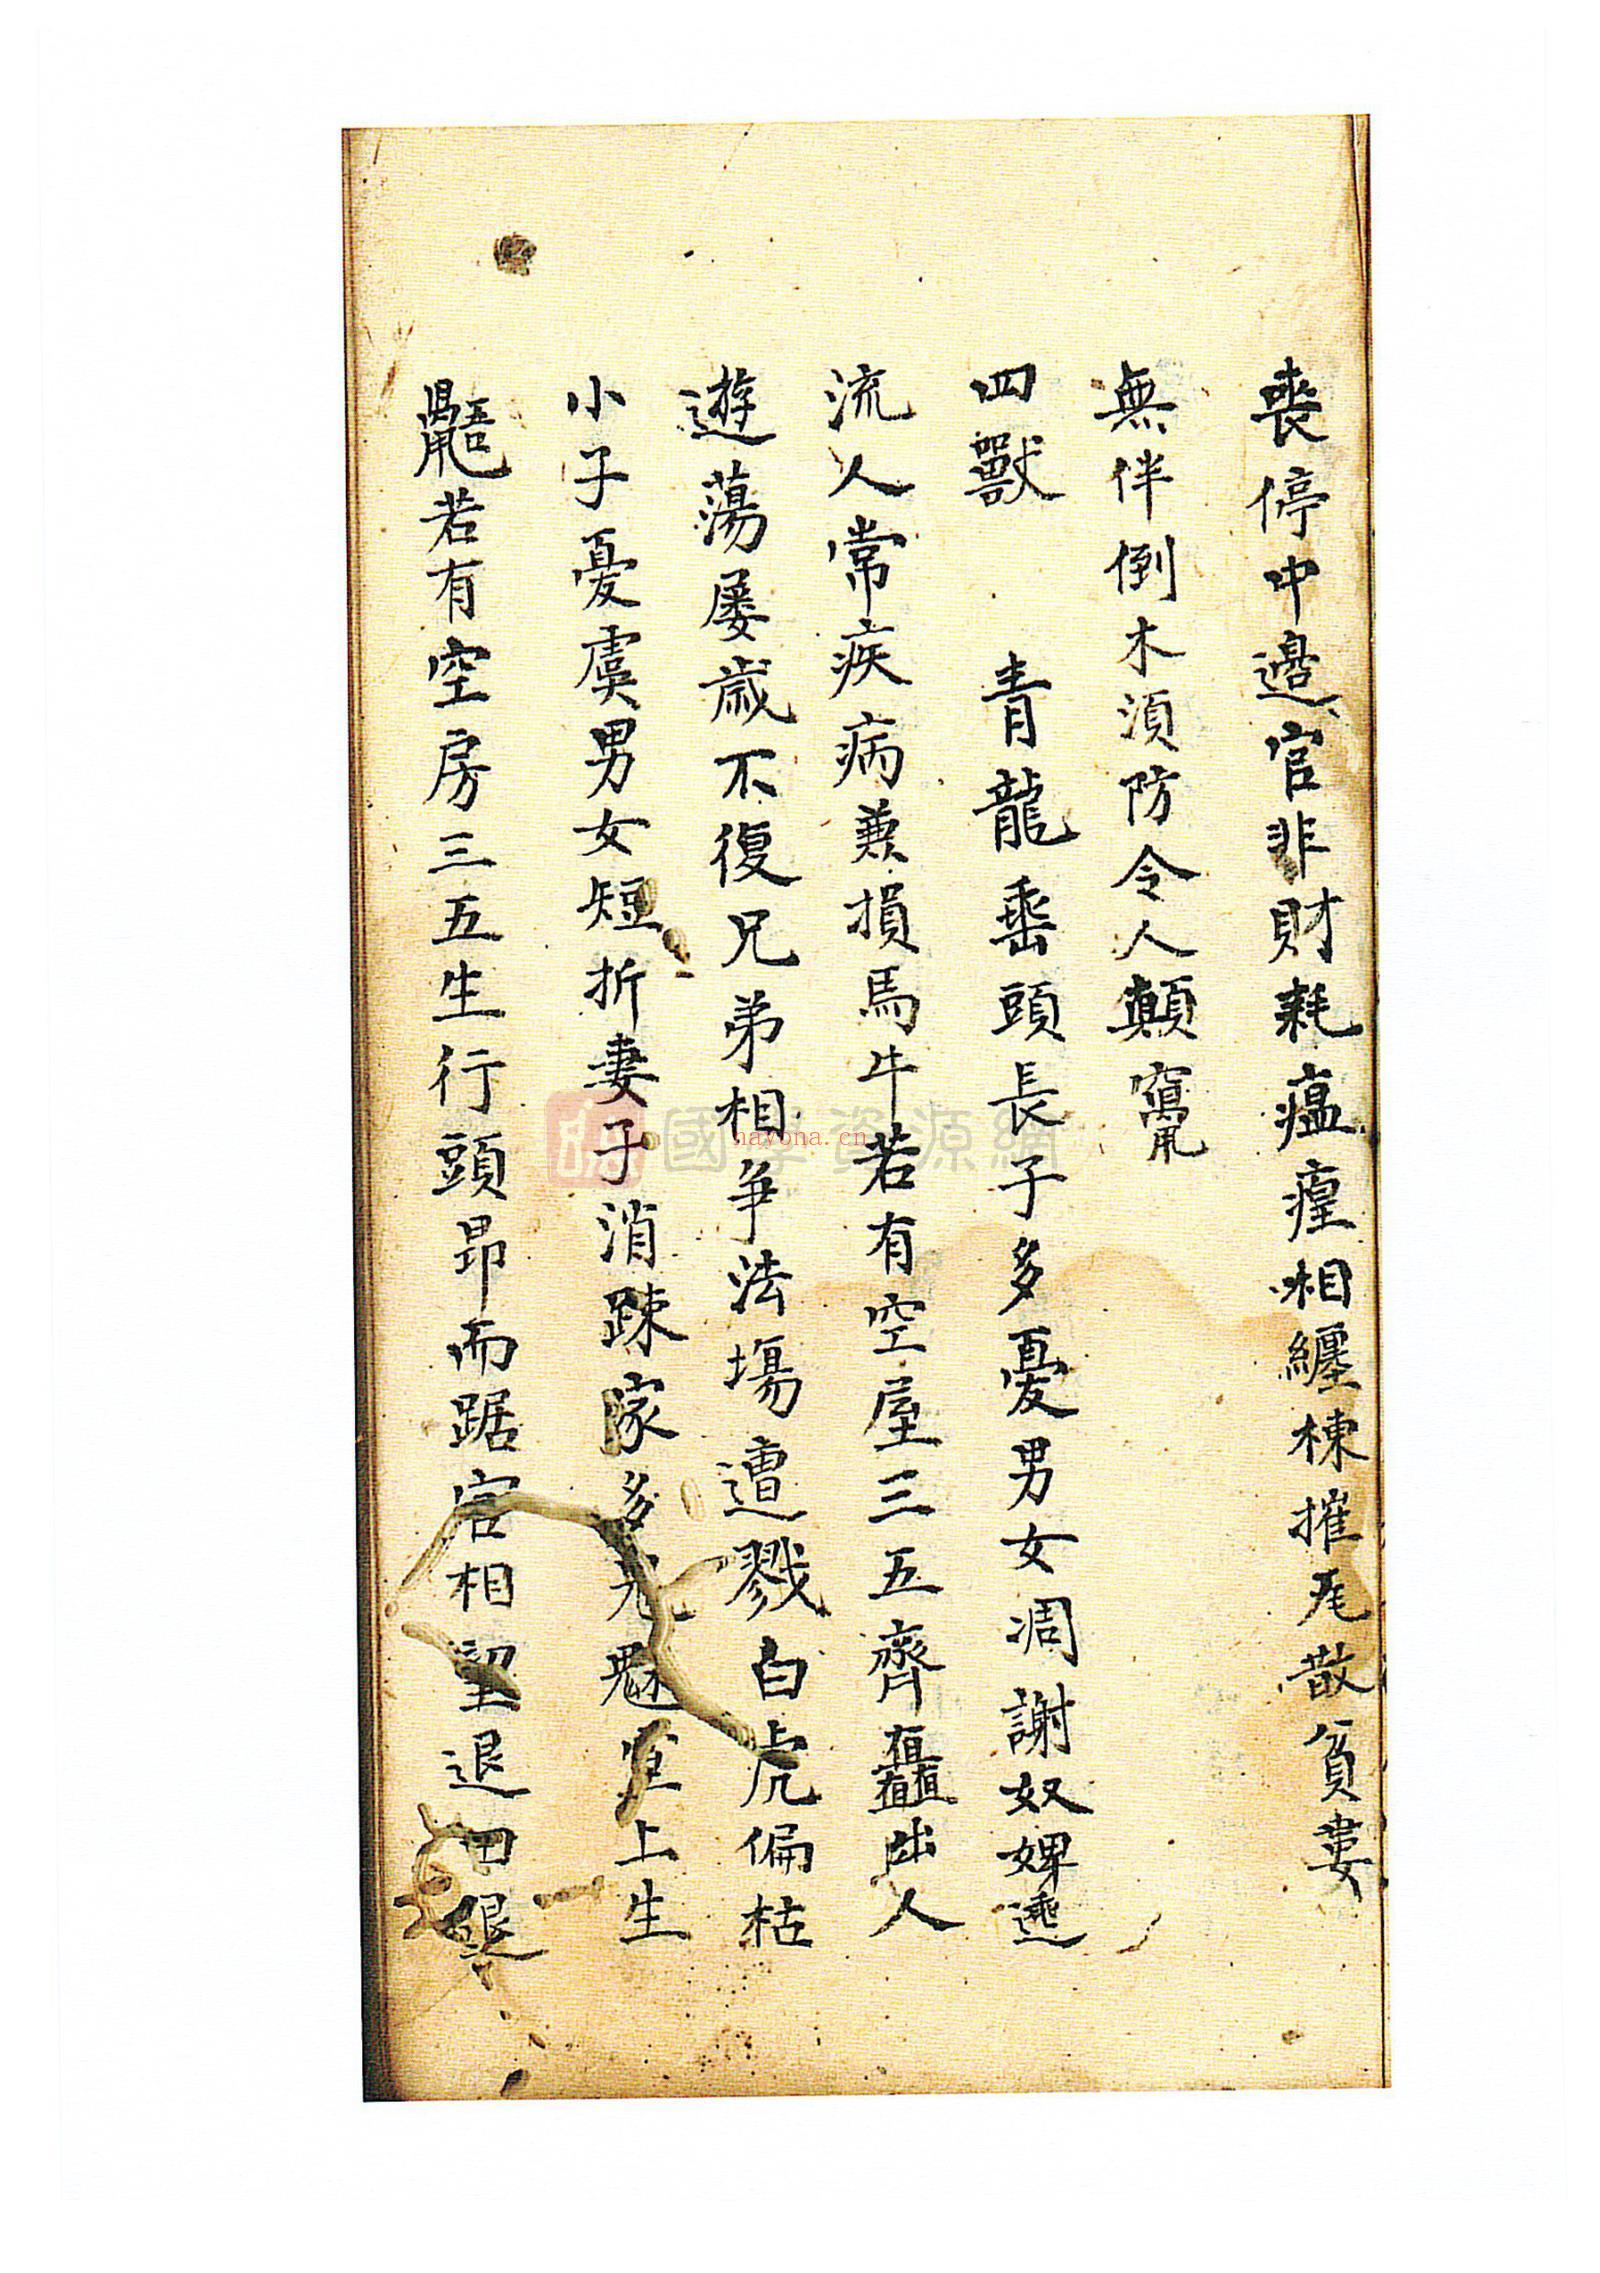 喪停中邉官非財耗瘟瘽相纏棟摧尾散貧妻
無伴倒木須防令人顛
四獸 青龍垂頭長子多憂男女凋謝奴婢逓
流人常疾病兼損馬牛若有空屋三五齊矗出人
遊蕩屡歳不復兄弟相爭法塲遭戮白虎偏枯
小子憂虞男女短折妻子消踈家多尤魅堂上生
若有空房三五生行頭昂而踞宕相望退田
國學資源網
nayona.cn